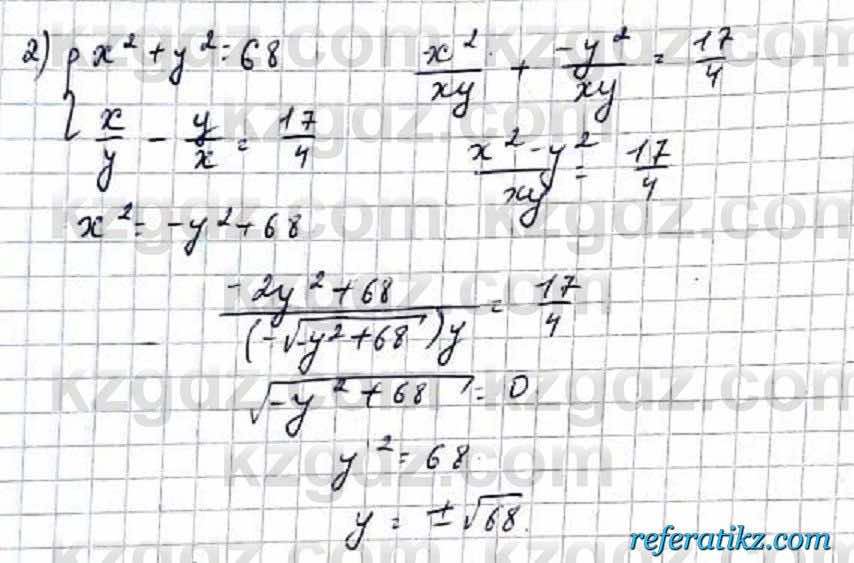 2) { x² + y² = 68
x/y - y/x = 17/4
x² = -y² + 68
x²/xy + -y²/xy = 17/4
x² - y²/xy = 17/4
-2y² + 68/(-√-y² + 68)y = 17/4
√-y² + 68 = 0
y² = 68
y = ±√68.
kzgdz.com
referatikz.com